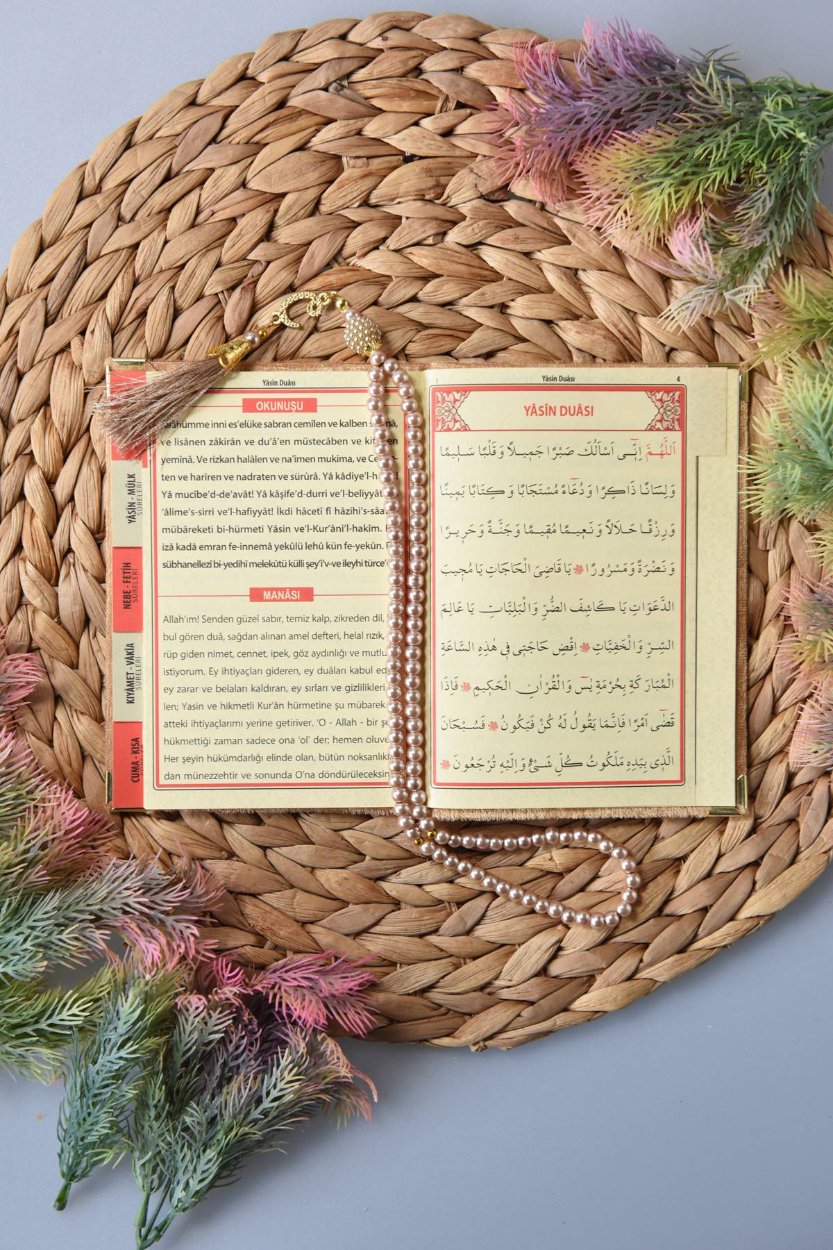 Yâsîn Duâsı
OKUNUŞU
ve lisânen zâkirân ve du'â'en müstecâben ve
yemînâ. Ve rizkan halâlen ve na'îmen mukima, ve
ten ve hariren ve nadraten ve sürûrâ. Yâ kâdiye'l-h
Yâ mucîbe'd-de'avât! Yâ kâşife'd-durri ve'l-beliyyât
'âlime's-sirri ve'l-hafiyyât! İkdi hâcetî fî hâzihi's-sâa
mübâreketi bi-hürmeti Yâsin ve'l-Kur'âni'l-hakîm.
izâ kadâ emran fe-innemâ yekûlü lehû kün fe-yekûn.
sübhanellezî bi-yedihî melekûtü külli şey'i'v-ve ileyhi türce'
MANÂSI
Allah'ım! Senden güzel sabır, temiz kalp, zikreden dil,
bul gören duâ, sağdan alınan amel defteri, helal rızık,
rüp giden nimet, cennet, ipek, göz aydınlığı ve mutlu
istiyorum. Ey ihtiyaçları gideren, ey duâları kabul ed
ey zarar ve belaları kaldıran, ey sırları ve gizlilikleri
len; Yasin ve hikmetli Kur'ân hürmetine şu mübarek
atteki ihtiyaçlarımı yerine getiriver. 'O - Allah - bir şe
hükmettiği zaman sadece ona 'ol' der; hemen oluve
Her şeyin hükümdarlığı elinde olan, bütün noksanlık
dan münezzehtir ve sonunda O'na döndürüleceksin
YÂSÎN - MÜLK
SÛRELERİ
NEBE - FETİH
SÛRELERİ
KIYÂMET - VÂKIA
SÛRELERİ
CUMA - KISA
Yâsîn Duâsı 4
YÂSÎN DUÂSI
اَللّٰهُمَّ اِنّ۪ى اَسْاَلُكَ صَبْرًا جَم۪يلًا وَقَلْبًا سَل۪يمًا
وَلِسَانًا ذَاكِرًا وَدُعَٓاءً مُسْتَجَابًا وَكِتَابًا يَم۪ينًا
وَرِزْقًا حَلَالًا وَنَع۪يمًا مُق۪يمًا وَجَنَّةً وَحَر۪يرًا
وَنَضْرَةً وَمَسْرُورًا يَا قَاضِىَ الْحَاجَاتِ يَا مُج۪يبَ
الدَّعَوَاتِ يَا كَاشِفَ الضُّرِّ وَالْبَلِيَّاتِ يَا عَالِمَ
السِّرِّ وَالْخَفِيَّاتِ اِقْضِ حَاجَت۪ى ف۪ى هٰذِهِ السَّاعَةِ
الْمُبَارَكَةِ بِحُرْمَةِ يٰسٓ وَالْقُرْاٰنِ الْحَك۪يمِ فَاِذَا
قَضٰٓى اَمْرًا فَاِنَّمَا يَقُولُ لَهُ كُنْ فَيَكُونُ فَسُبْحَانَ
الَّذ۪ى بِيَدِه۪ مَلَكُوتُ كُلِّ شَىْءٍ وَاِلَيْهِ تُرْجَعُونَ